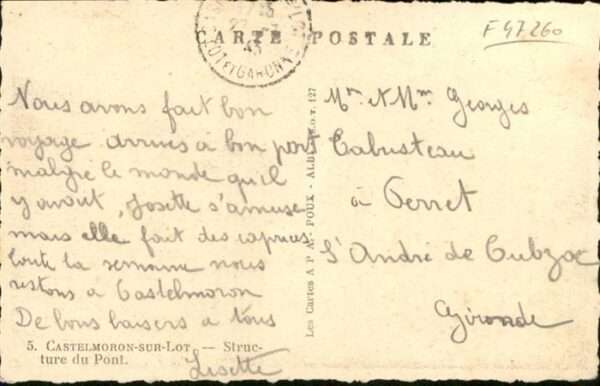 F 47260
CARTE POSTALE
LOT-ET-GARONNE
Nous avons fait bon
voyage arrivés à bon port
malgré le monde qu'il
y avait, Josette s'amuse
mais elle fait des caprices
toute la semaine nous
restons à Castelmoron
De bons baisers à tous
Lisette
5. CASTELMORON-SUR-LOT. — Struc-
ture du Pont.
Les Cartes A P A - POUX - ALBI
127
Mr et Mme Georges
Cabusteau
à Perret
St André de Cubzac
Gironde